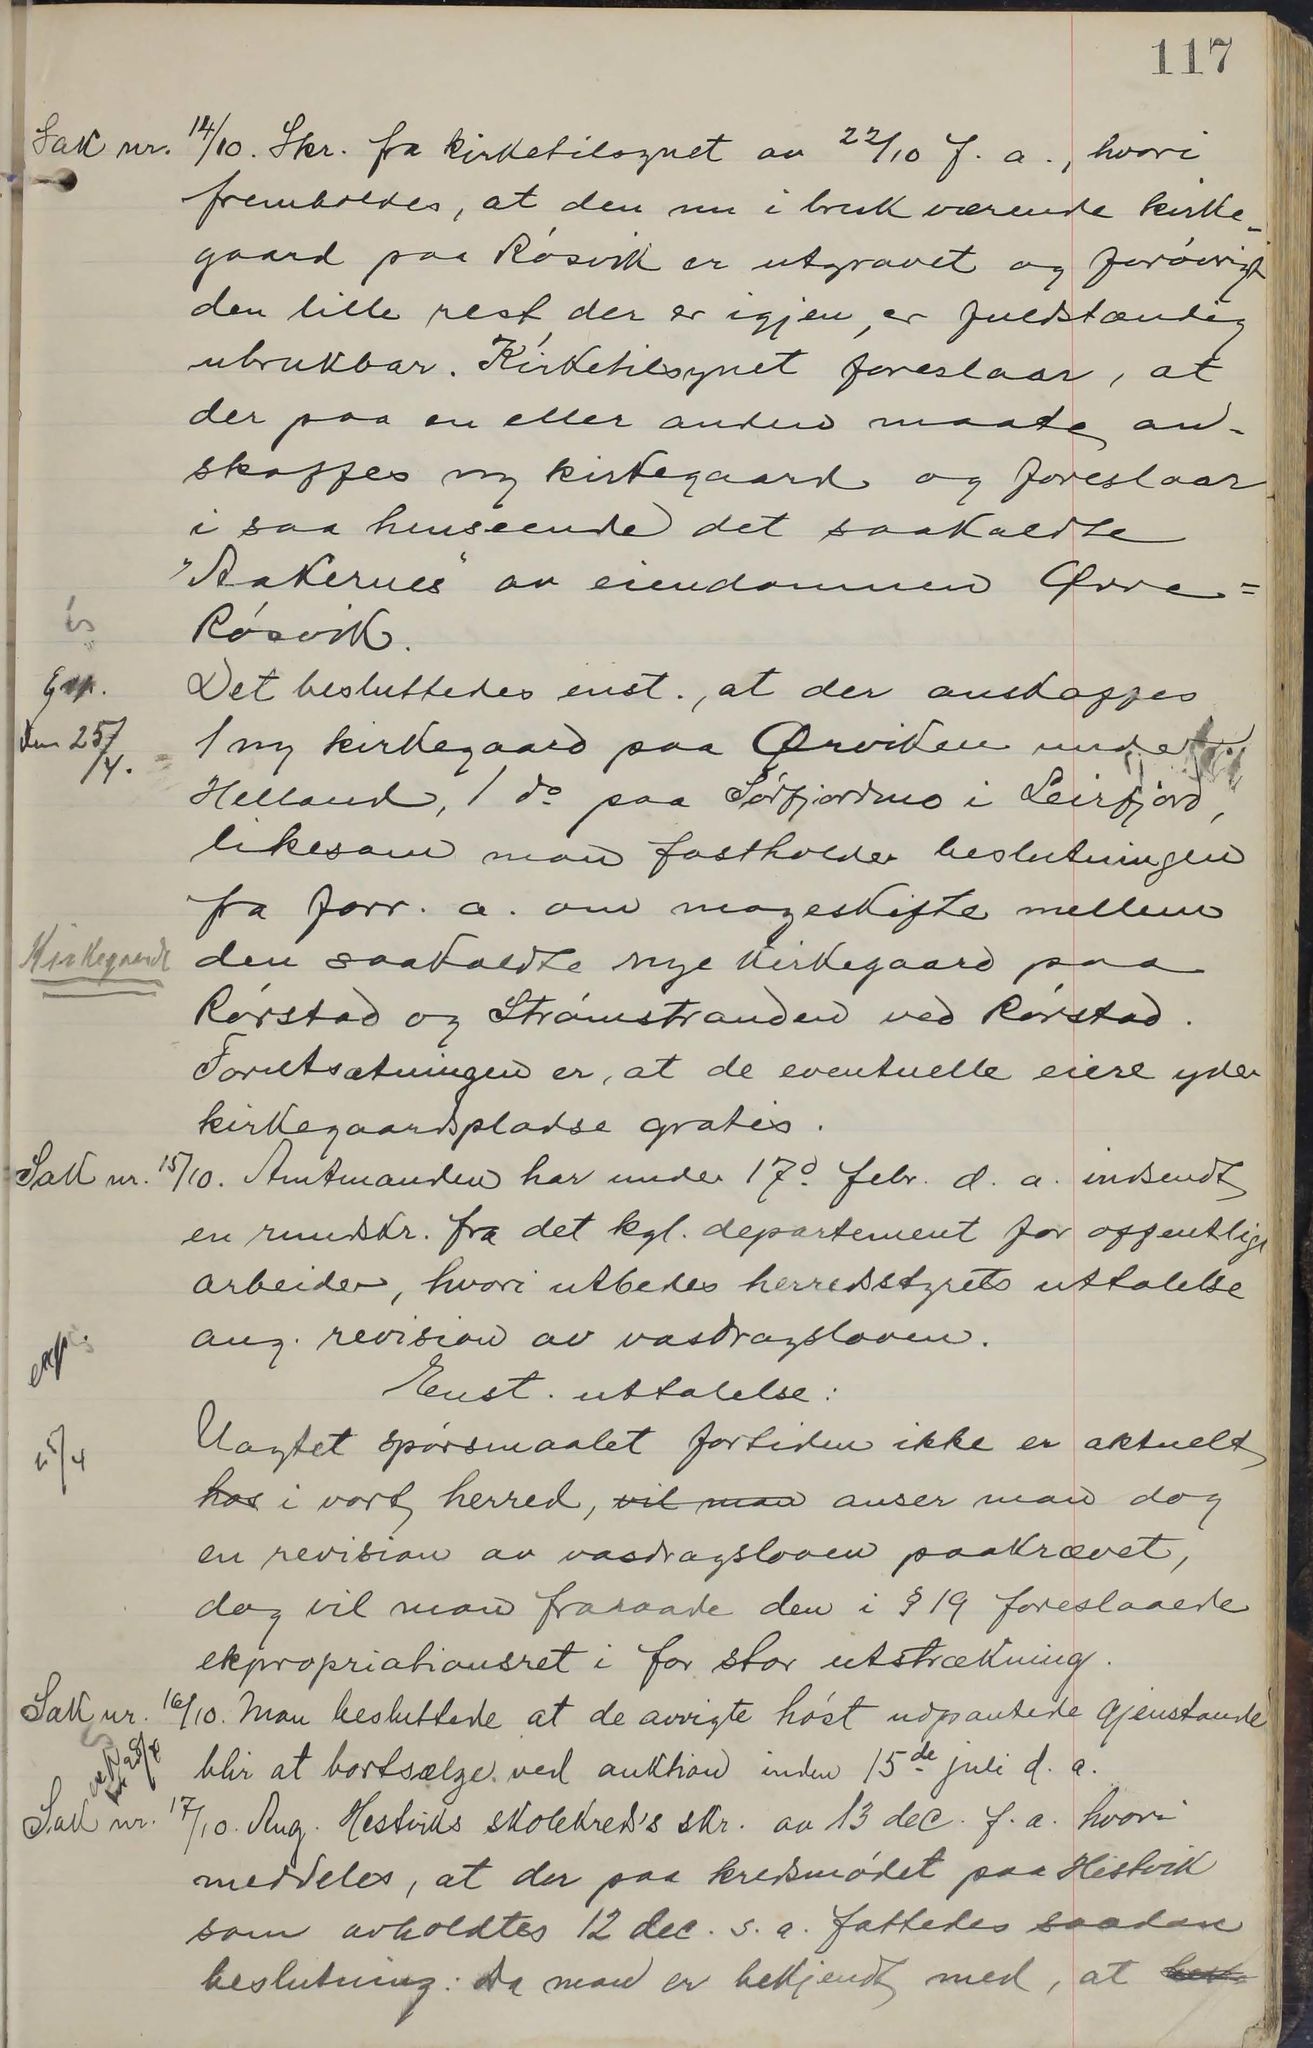 117
Sak nr. 14/10. Skr. fra kirketilsynet av 22/10 f. a., hvori
fremholdes, at den nu i bruk værende kirke-
gaard paa Røsvik er utgravet og forøvrigt
den lille rest, der er igjen, er fuldstændig
ubrukbar. Kirketilsynet foreslaar, at
der paa en eller anden maate an-
skaffes ny kirkegaard og foreslaar
i saa henseende det saakaldte
"Aakernes" av eiendommen Øvre=
Røsvik.
Exp. Det besluttedes enst., at der anskaffes
den 25/4. 1 ny kirkegaard paa Ørviken under
Helland, 1 do paa Sørfjordmo i Leirfjord,
likesom man fastholder beslutningen
fra forr. a. om mageskifte mellem
Kirkegaard den saakaldte nye kirkegaard paa
Rørstad og Strømstranden ved Rørstad.
Forutsætningen er, at de eventuelle eiere yder
kirkegaardspladse gratis.
Sak nr. 15/10. Amtmanden har under 17d febr. d. a. indsendt
en rundskr. fra det kgl. departement for offentlige
arbeider, hvori utbedes herredsstyrets uttalelse
exp. ang. revision av vasdragsloven.
Enst. uttalelse:
25/4 Uagtet spørsmaalet fortiden ikke er aktuelt
hos i vort herred, vil man anser man dog
en revision av vasdragsloven paakrævet,
dog vil man fraraade den i § 19 foreslaaede
ekpropriationsret i for stor utstrækning.
Sak nr. 16/10. Man besluttede at de avvigte høst udpantede gjenstande
blir at bortsælge ved auktion inden 15de juli d. a.
Sak nr. 17/10. Ang. Hestviks skolekred's skr. av 13 dec. f. a. hvori
meddeles, at der paa kredsmødet paa Hestvik
som avholdtes 12 dec. s. a. fattedes saadan
beslutning: Da man er bekjendt med, at